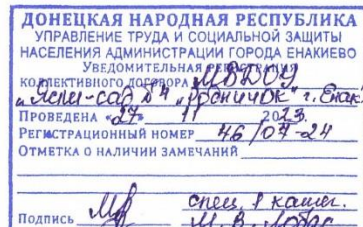 ДОНЕЦКАЯ НАРОДНАЯ РЕСПУБЛИКА
УПРАВЛЕНИЕ ТРУДА И СОЦИАЛЬНОЙ ЗАЩИТЫ
НАСЕЛЕНИЯ АДМИНИСТРАЦИИ ГОРОДА ЕНАКИЕВО
УВЕДОМИТЕЛЬНАЯ РЕГИСТРАЦИЯ
КОЛЛЕКТИВНОГО ДОГОВОРА МБДОУ
"Ясли-сад №4 "Родничок" г. Енак
ПРОВЕДЕНА «27» 11 2023.
РЕГИСТРАЦИОННЫЙ НОМЕР 46/07-24
ОТМЕТКА О НАЛИЧИИ ЗАМЕЧАНИЙ
спец. 1 катег.
ПОДПИСЬ М. В.